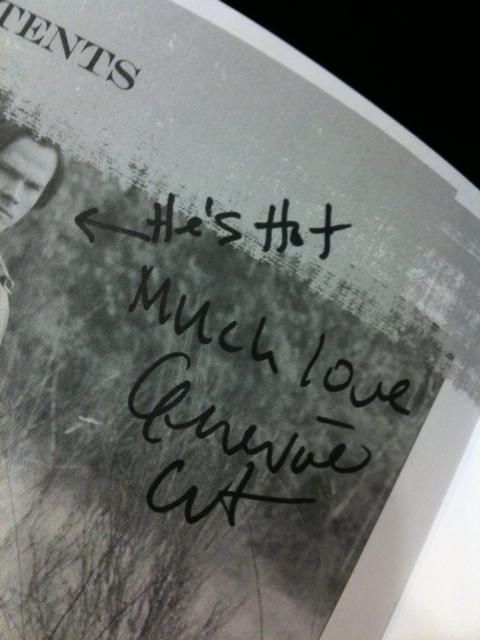 TENTS
He's Hot
Much love
Genevieve